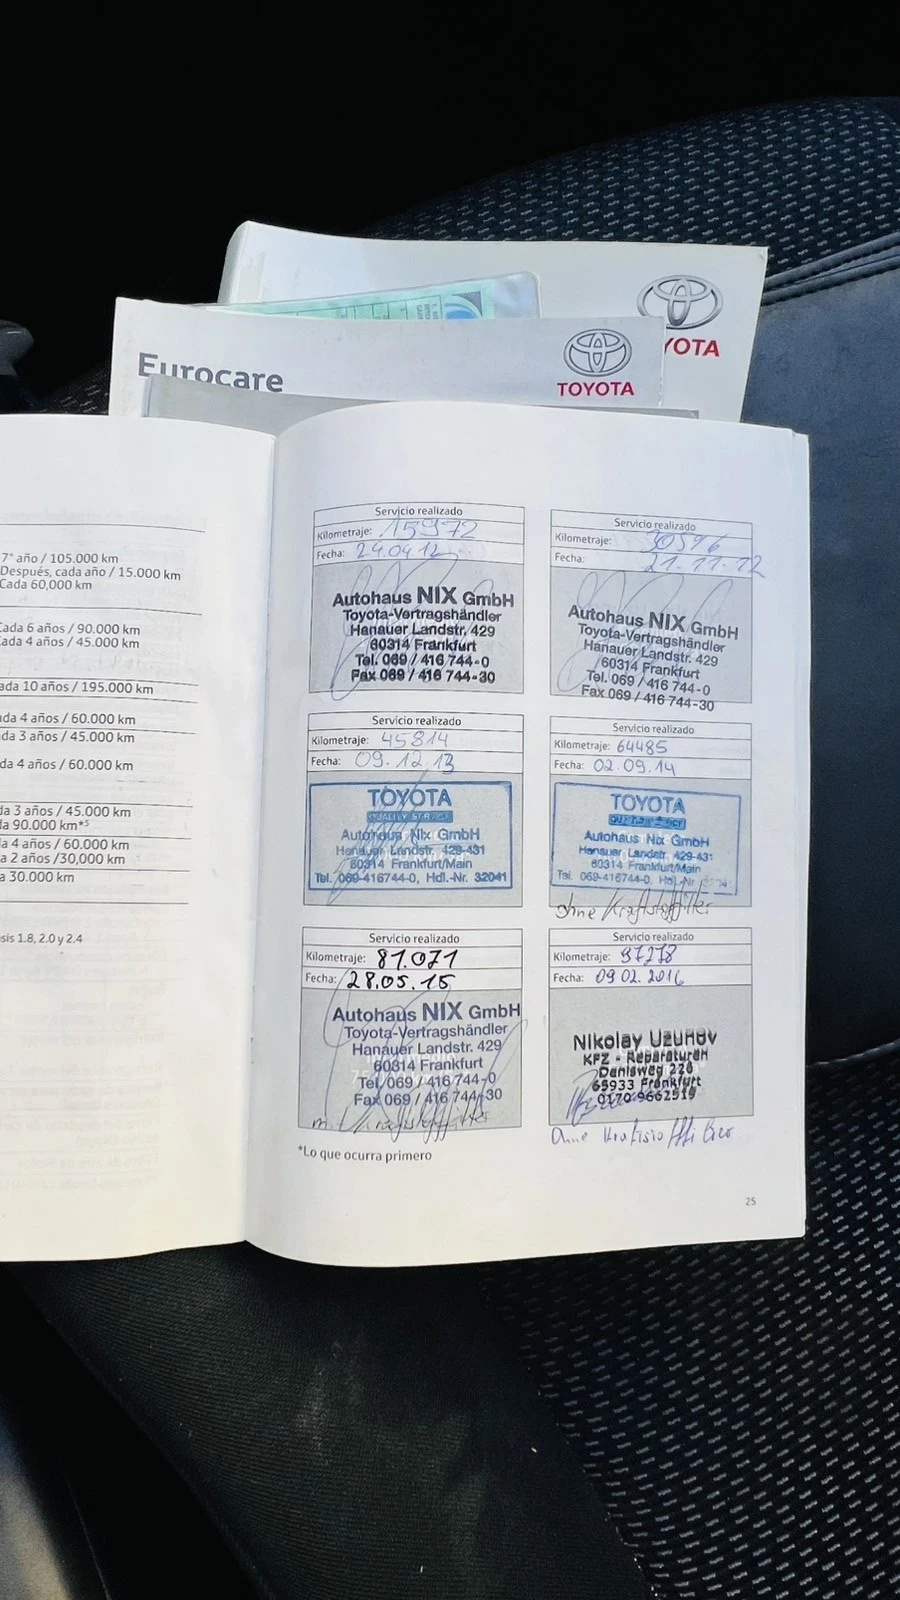 TOYOTA
Eurocare
TOYOTA
7° año / 105.000 km
Después, cada año / 15.000 km
Cada 60,000 km
Cada 6 años / 90.000 km
Cada 4 años / 45.000 km
ada 10 años / 195.000 km
da 4 años / 60.000 km
da 3 años / 45.000 km
da 4 años / 60.000 km
da 3 años / 45.000 km
a 90.000 km*⁵
a 4 años / 60.000 km
a 2 años /30,000 km
a 30.000 km
sis 1.8, 2.0 y 2.4
Servicio realizado
Kilometraje: 15972
Fecha: 24.04.12
Autohaus NIX GmbH
Toyota-Vertragshändler
Hanauer Landstr. 429
60314 Frankfurt
Tel. 069 / 416 744-0
Fax 069 / 416 744-30
Servicio realizado
Kilometraje: 30596
Fecha: 21.11.12
Autohaus NIX GmbH
Toyota-Vertragshändler
Hanauer Landstr. 429
60314 Frankfurt
Tel. 069 / 416 744-0
Fax 069 / 416 744-30
Servicio realizado
Kilometraje: 45814
Fecha: 09.12.13
TOYOTA
QUALITY SERVICE
Autohaus Nix GmbH
Hanauer Landstr. 429-431
60314 Frankfurt/Main
Tel. 069-416744-0, Hdl.-Nr. 32041
Servicio realizado
Kilometraje: 64485
Fecha: 02.09.14
TOYOTA
Autohaus Nix GmbH
Hanauer Landstr. 429-431
60314 Frankfurt/Main
Tel. 069-416744-0, Hdl.-Nr.
ohne Kraftstofffilter
Servicio realizado
Kilometraje: 81.071
Fecha: 28.05.15
Autohaus NIX GmbH
Toyota-Vertragshändler
Hanauer Landstr. 429
60314 Frankfurt
Tel. 069 / 416 744-0
Fax 069 / 416 744-30
m. Kraftstofffilter
Servicio realizado
Kilometraje: 97278
Fecha: 09.02.2016
Nikolay Uzunov
KFZ - Reparaturen
Denisweg 228
65933 Frankfurt
0170 9662519
Ohne Kraftstofffilter
*Lo que ocurra primero
25